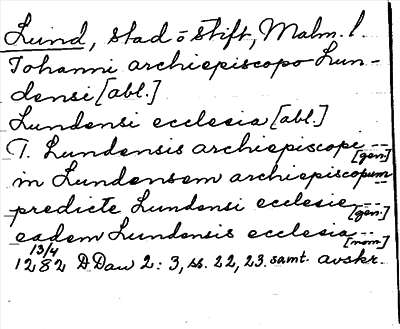 Lund, stad o stift, Malm. l.
Johanni archiepiscopo Lun-
densi [abl.]
Lundensi ecclesia [abl.]
J. Lundensis archiepiscopi -- [gen.]
in Lundensem archiepiscopum --
predicte Lundensi ecclesie -- [gen.]
eadem Lundensis ecclesia -- [nom.]
13/4
1282 D Dan 2: 3, ss. 22, 23. samt. avskr.